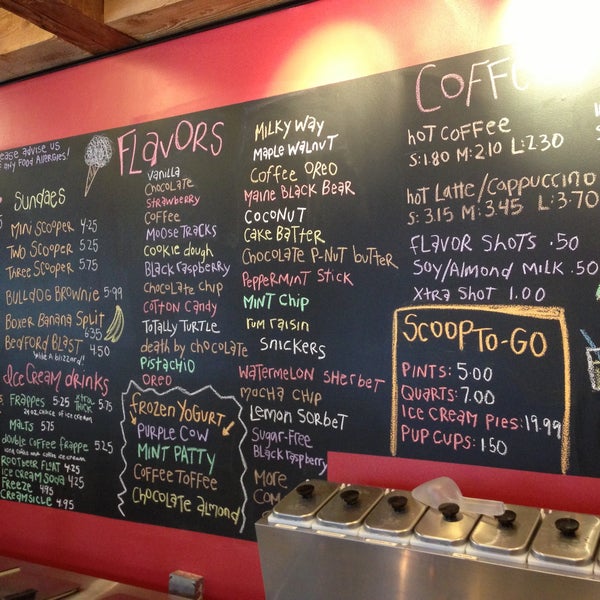 ease advise us
any Food Allergies!
Sundaes
Mini Scooper 4.25
Two Scooper 5.25
Three Scooper 5.75
Bulldog Brownie 5.99
Boxer Banana Split
6.35
Bedford Blast 4.50
Ice Cream Drinks
Frappes 5.25 xtra thick 5.75
Malts 5.75
Double Coffee Frappe 5.25
Rootbeer Float 4.25
Ice Cream Soda 4.25
Freeze 4.95
Creamsicle 4.95
Flavors
Vanilla
Chocolate
Strawberry
Coffee
Moose Tracks
Cookie Dough
Black Raspberry
Chocolate Chip
Cotton Candy
Totally Turtle
death by chocolate
Pistachio
Oreo
frozen Yogurt
Purple Cow
Mint Patty
Coffee Toffee
Chocolate Almond
Milky Way
Maple Walnut
Coffee Oreo
Maine Black Bear
Coconut
Cake Batter
Chocolate P-Nut butter
Peppermint Stick
Mint Chip
rum raisin
Snickers
Watermelon Sherbet
Mocha Chip
Lemon Sorbet
Sugar-Free
Black Raspberry
More
Com
Coff
hot Coffee
S:1.80 M:2.10 L:2.30
hot Latte/Cappuccino
S:3.15 M:3.45 L:3.70
Flavor Shots .50
Soy/Almond Milk .50
Xtra Shot 1.00
Scoop To-Go
Pints: 5.00
Quarts: 7.00
Ice Cream Pies: 19.99
Pup Cups: 1.50